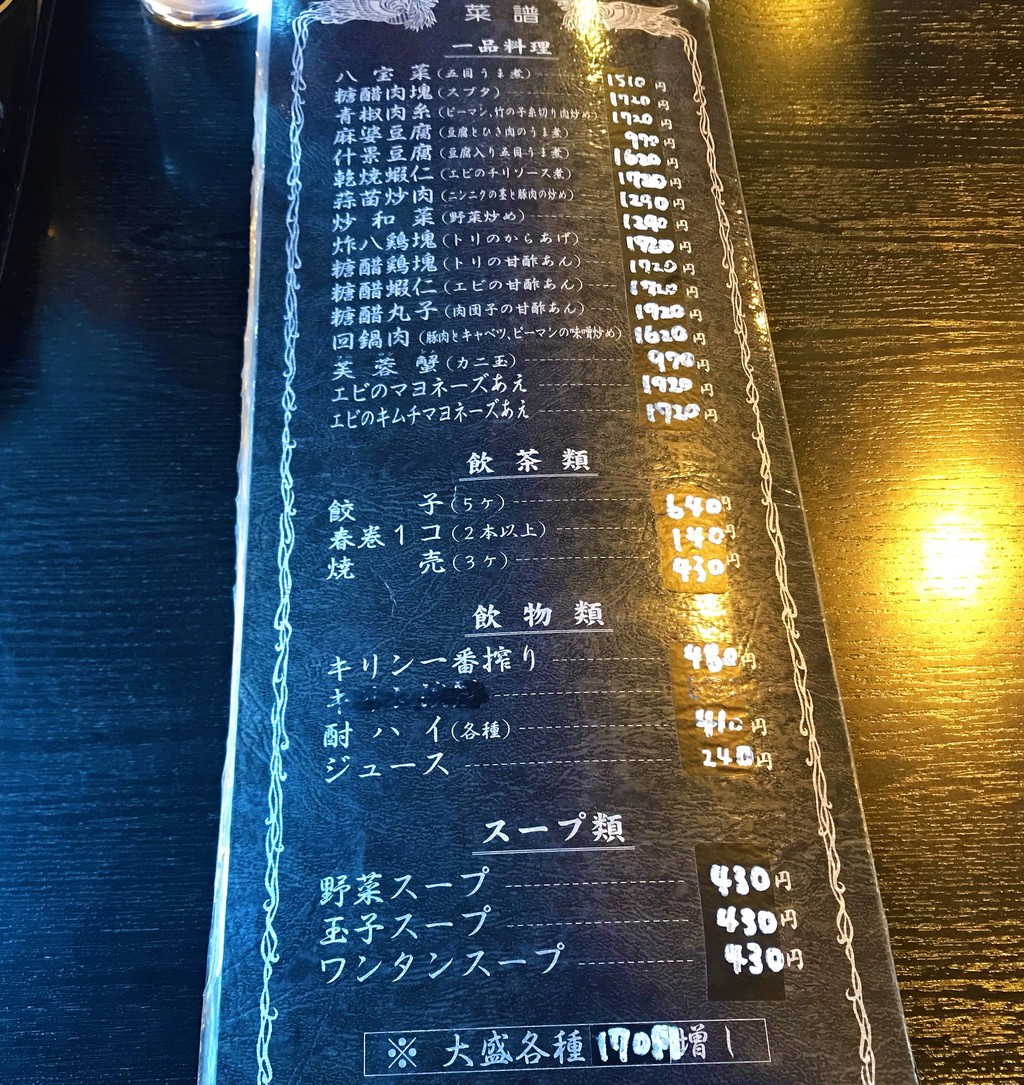 菜譜
一品料理
八宝菜(五目うま煮) 1510円
糖醋肉塊(スブタ) 1720円
青椒肉糸(ピーマン、竹の子糸切り肉炒め) 1720円
麻婆豆腐(豆腐とひき肉のうま煮) 970円
什景豆腐(豆腐入り五目うま煮) 1620円
乾焼蝦仁(エビのチリソース煮) 1720円
蒜苗炒肉(ニンニクの茎と豚肉の炒め) 1290円
炒和菜(野菜炒め) 1290円
炸八鶏塊(トリのからあげ) 1720円
糖醋鶏塊(トリの甘酢あん) 1720円
糖醋蝦仁(エビの甘酢あん) 1920円
糖醋丸子(肉団子の甘酢あん) 1920円
回鍋肉(豚肉とキャベツ、ピーマンの味噌炒め) 1620円
芙蓉蟹(カニ玉) 970円
エビのマヨネーズあえ 1920円
エビのキムチマヨネーズあえ 1920円
飲茶類
餃子(5ヶ) 640円
春巻1コ(2本以上) 140円
焼売(3ヶ) 430円
飲物類
キリン一番搾り 480円
キリン
酎ハイ(各種) 410円
ジュース 240円
スープ類
野菜スープ 430円
玉子スープ 430円
ワンタンスープ 430円
※ 大盛各種170円増し